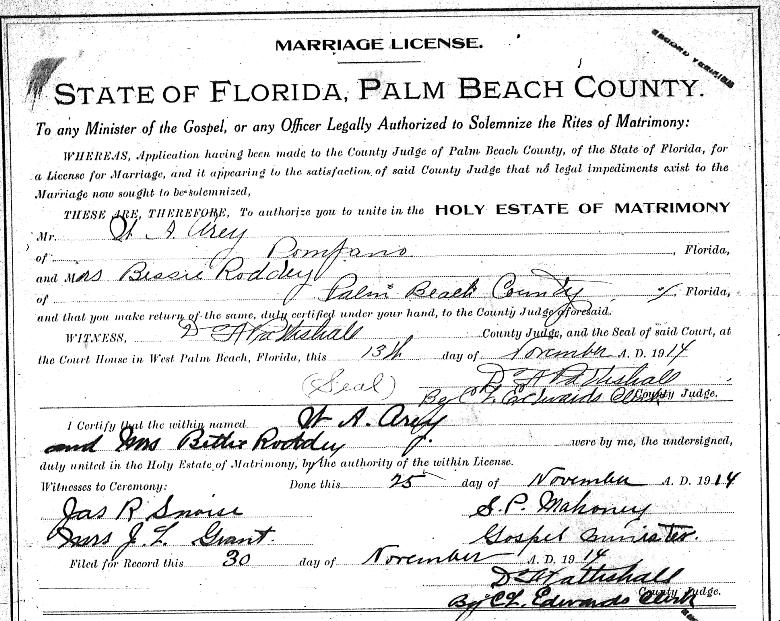 MARRIAGE LICENSE.
RECORD VERIFIED
STATE OF FLORIDA, PALM BEACH COUNTY.
To any Minister of the Gospel, or any Officer Legally Authorized to Solemnize the Rites of Matrimony:
WHEREAS, Application having been made to the County Judge of Palm Beach County, of the State of Florida, for
a License for Marriage, and it appearing to the satisfaction of said County Judge that no legal impediments exist to the
Marriage now sought to be solemnized,
THESE ARE, THEREFORE, To authorize you to unite in the HOLY ESTATE OF MATRIMONY
Mr. W A Arey
of Pompano Florida,
and Mrs Bessie Roddey
of Palm Beach County Florida,
and that you make return of the same, duly certified under your hand, to the County Judge aforesaid.
WITNESS, County Judge, and the Seal of said Court, at
the Court House in West Palm Beach, Florida, this 13th day of November A. D. 1914
(Seal)
By C L Edwards Clerk County Judge.
I Certify that the within named W A. Arey
and Mrs Bettie Roddey were by me, the undersigned,
duly united in the Holy Estate of Matrimony, by the authority of the within License.
Witnesses to Ceremony: Done this 25 day of November A. D. 1914
Jas R S. P. Mahoney
Mrs J. L. Grant Gospel Minister.
Filed for Record this 30 day of November A. D. 1914
County Judge.
By C L. Edwards Clerk